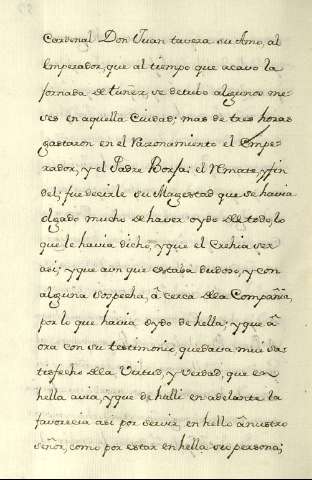 Cardenal Don Juan tavera su Amo, al
Emperador, que al tiempo que acavo la
Jornada de tunez, se detubo algunos me-
ses en aquella Ciudad; mas de tres horas
gastaron en el Razonamiento el Empe-
rador, y el Padre Borja; el Remate, y fin
del; fue decirle su Magestad que se havia
olgado mucho de haver oydo de todo, lo
que le havia dicho, y que el Crehia ser
asi; y que aun que estaba dudoso, y con
alguna sospecha, â cerca dela Compañia,
por lo que havia oydo de hella; y que â
ora con su testimonio quedava mui sa-
tisfecho dela Virtud, y Verdad, que en
hella avia, y que de halli en adelante la
favorecia asi por servir, en hello â nuestro
señor, como por estar en hella su persona;